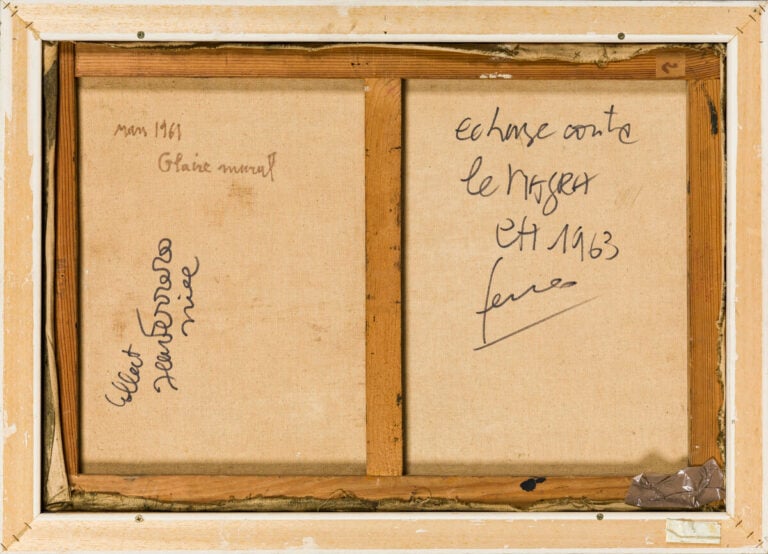 mars 1961
Glaire mural
Collect
Jean Ferrero
nice
echange contre
le NAGRA
en 1963
2